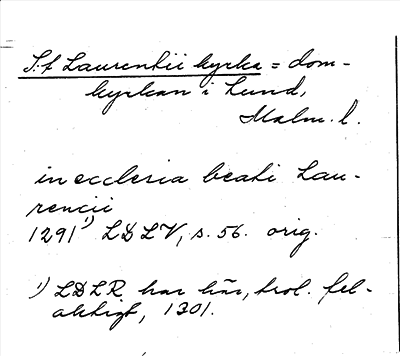 S:t Laurentii kyrka = dom-
kyrkan i Lund,
Malm. l.
in ecclesia beati Lau-
rencii
1291¹⁾ LDLV, s. 56. orig.
¹⁾ LDLR har här, trol. fel-
aktigt, 1301.